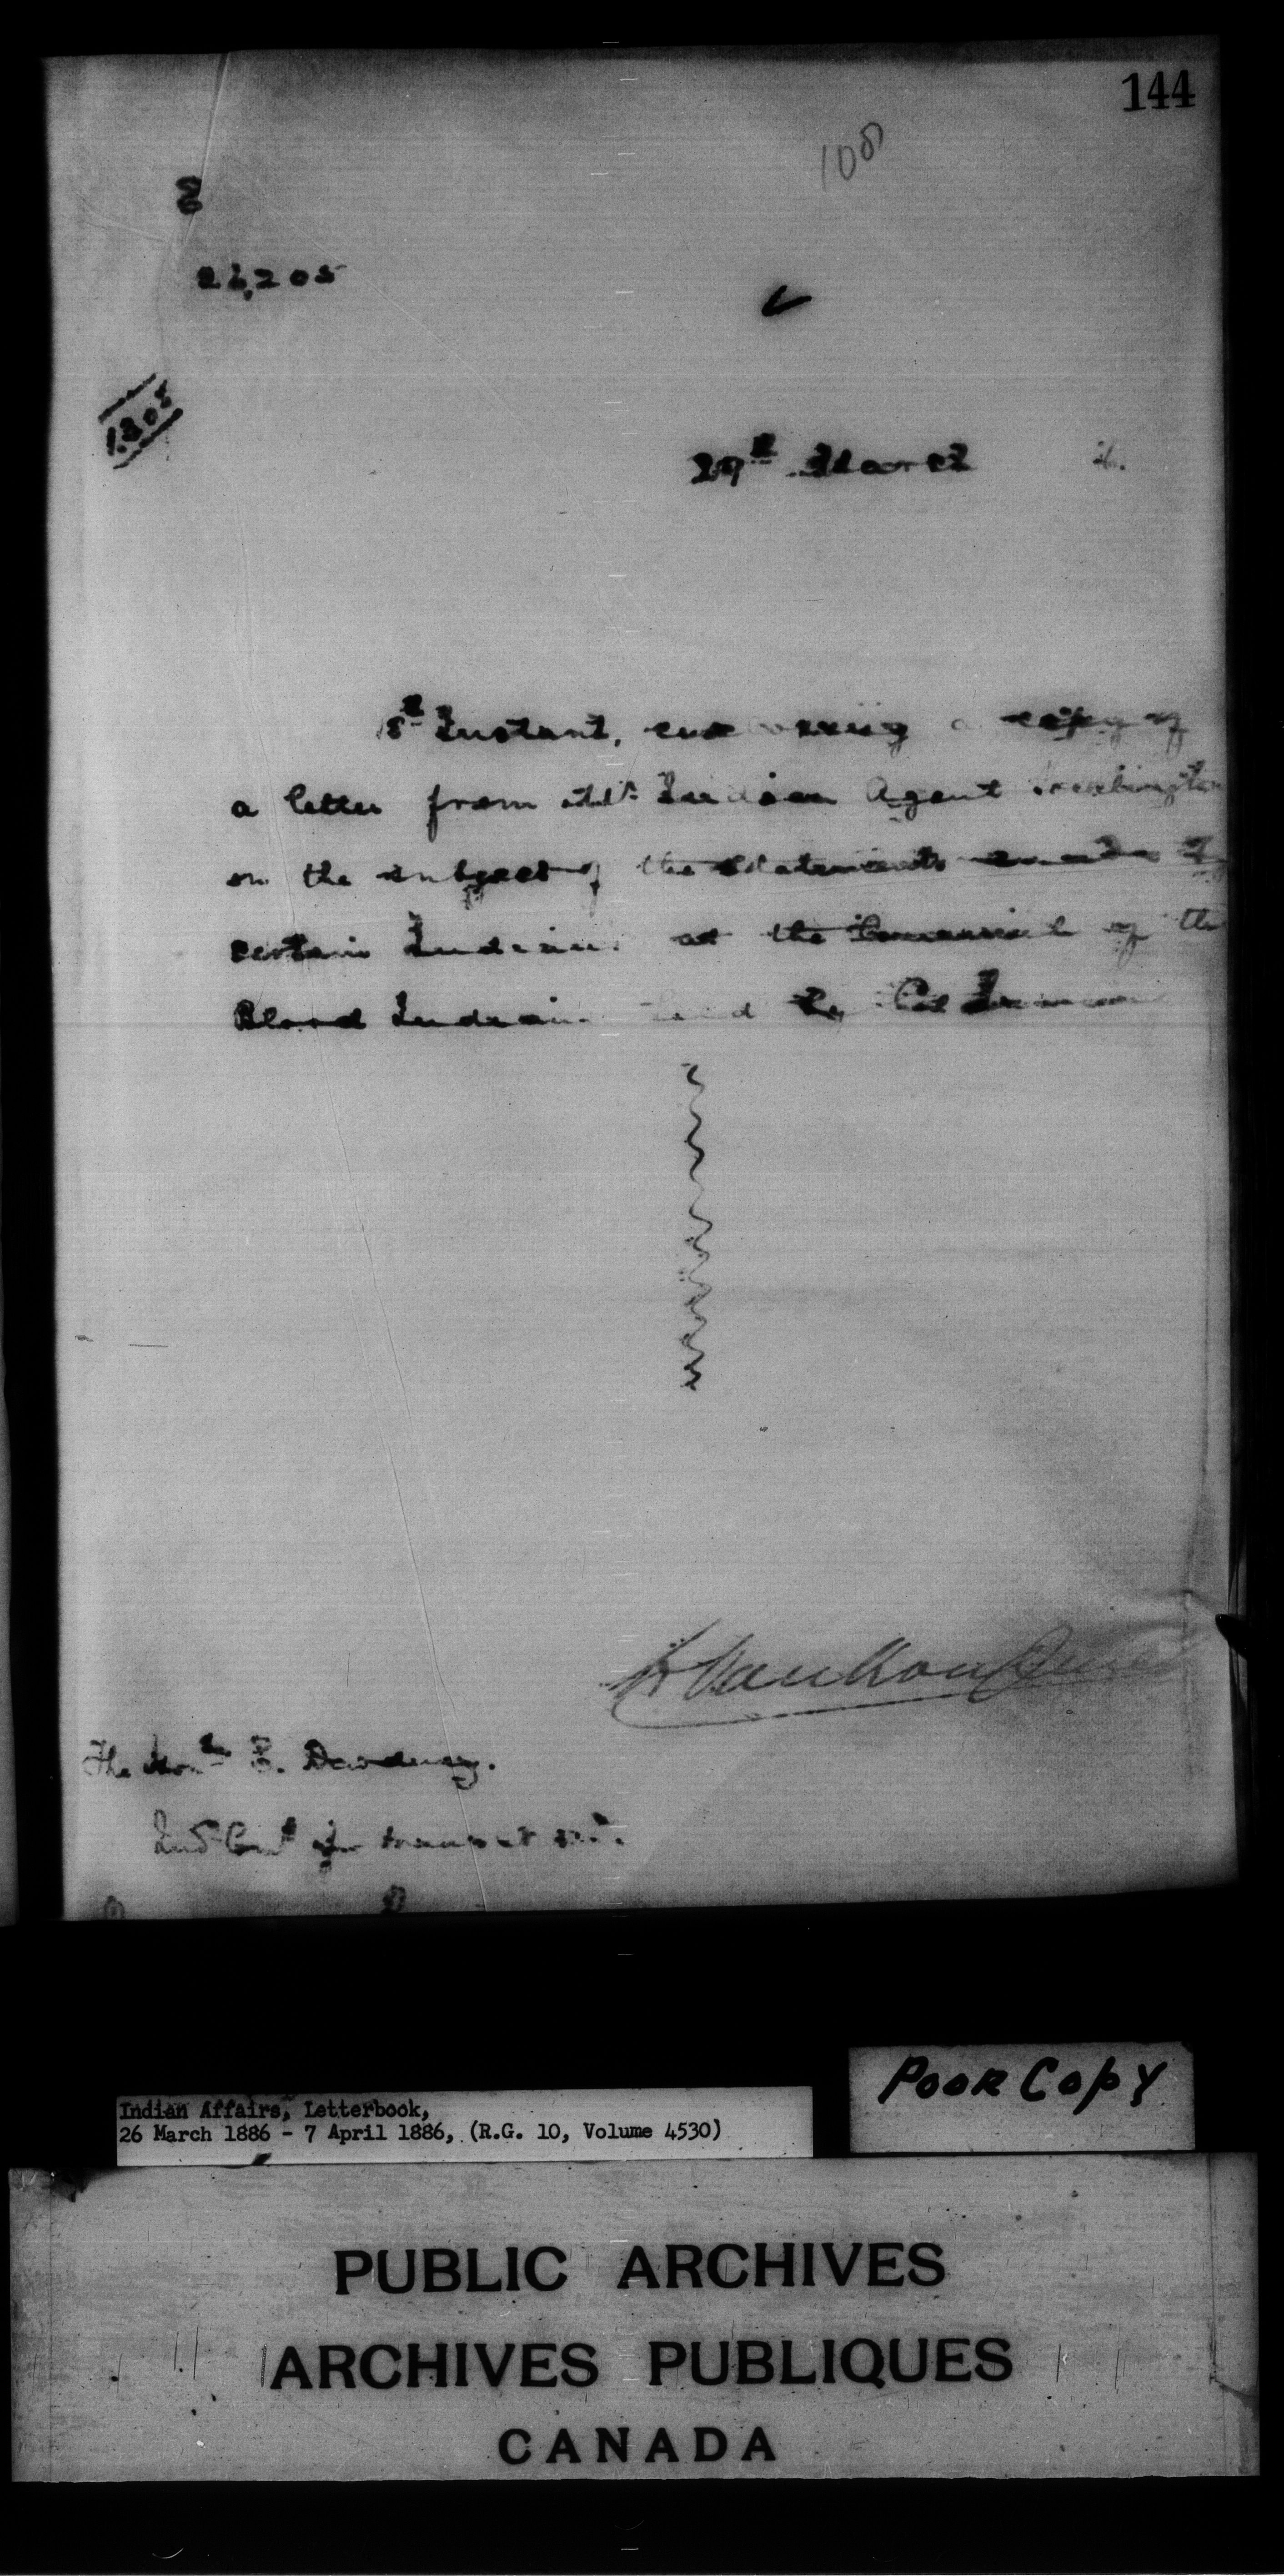 144
100
E
26,205
1808
29th March 6.
18th Instant, enclosing a copy of
a letter from Indian Agent Pocklington
on the subject of the statements made by
certain Indians at the Council of the
Blood Indians held by Col Irvine
L VanKoughnet
The Honble E. Dewdney.
Ind Comr
Poor Copy
Indian Affairs, Letterbook,
26 March 1886 - 7 April 1886, (R.G. 10, Volume 4530)
PUBLIC ARCHIVES
ARCHIVES PUBLIQUES
CANADA